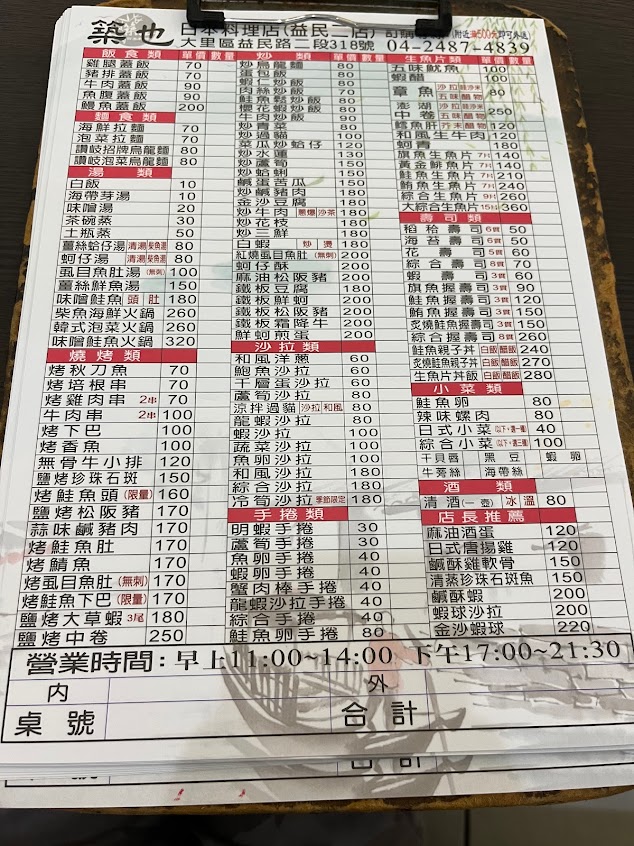 築也 日本料理店(益民二店) (附近滿500元即可外送)
大里區益民路二段318號 04-2487-4839
飯食類 單價 數量
雞腿蓋飯 70
豬排蓋飯 70
牛肉蓋飯 90
魚腹蓋飯 90
鰻魚蓋飯 200
麵食類
海鮮拉麵 70
泡菜拉麵 70
讚岐招牌烏龍麵 80
讚岐泡菜烏龍麵 80
湯類
白飯 10
海帶芽湯 10
味噌湯 20
茶碗蒸 30
土瓶蒸 50
薑絲蛤仔湯 清湯 柴魚湯 80
蚵仔湯 清湯 柴魚湯 80
虱目魚肚湯 (無刺) 100
薑絲鮮魚湯 150
味噌鮭魚 頭 肚 180
柴魚海鮮火鍋 260
韓式泡菜火鍋 260
味噌鮭魚火鍋 320
燒烤類
烤秋刀魚 70
烤培根串 70
烤雞肉串 2串 70
牛肉串 2串 100
烤下巴 100
烤香魚 100
無骨牛小排 120
鹽烤珍珠石斑 150
烤鮭魚頭 (限量) 160
鹽烤松阪豬 170
蒜味鹹豬肉 170
烤鮭魚肚 170
烤鯖魚 170
烤虱目魚肚 (無刺) 170
烤鮭魚下巴 (限量) 170
鹽烤大草蝦 3尾 180
鹽烤中卷 250
炒類 單價 數量
炒烏龍麵 80
蛋包飯 80
蝦仁炒飯 80
肉絲炒飯 80
鮭魚鬆炒飯 80
櫻花蝦炒飯 80
牛肉炒飯 90
炒青菜 80
炒過貓 100
菜瓜炒蛤仔 120
炒水蓮 130
炒蘆筍 150
炒蛤蜊 150
鹹蛋苦瓜 150
炒鹹豬肉 180
金沙豆腐 180
炒牛肉 蔥爆 沙茶 180
炒花枝 180
炒三鮮 180
白蝦 炒 燙 180
紅燒虱目魚肚 (無刺) 200
蚵仔酥 200
麻油松阪豬 200
鐵板豆腐 180
鐵板鮮蚵 200
鐵板松阪豬 200
鐵板霜降牛 200
鮮蚵煎蛋 200
沙拉類
和風洋蔥 60
鮑魚沙拉 60
千層蛋沙拉 60
蘆筍沙拉 80
涼拌過貓 沙拉 和風 80
龍蝦沙拉 80
蝦沙拉 100
蔬菜沙拉 100
魚卵沙拉 100
和風沙拉 180
綜合沙拉 180
冷筍沙拉 季節限定 180
手捲類
明蝦手捲 30
蘆筍手捲 30
魚卵手捲 40
蝦卵手捲 40
蟹肉棒手捲 40
龍蝦沙拉手捲 40
綜合手捲 40
鮭魚卵手捲 80
生魚片類 單價 數量
五味魷魚 100
蝦醋 100
章魚 沙拉 哇沙米 五味 醋物 80
澎湖中卷 沙拉 哇沙米 五味 醋物 250
鱈魚肝 芥末 醋物 100
和風生牛肉 120
蚵青 80
旗魚生魚片 7片 140
黃金鯡魚 7片 140
鮭魚生魚片 7片 210
鮪魚生魚片 7片 240
綜合生魚片 9片 260
大綜合生魚片 15片 360
壽司類
稻稔壽司 6貫 50
海苔壽司 6貫 50
花壽司 6貫 60
綜合壽司 8貫 70
蝦壽司 3貫 60
旗魚握壽司 3貫 90
鮭魚握壽司 3貫 120
鮪魚握壽司 3貫 150
炙燒鮭魚握壽司 3貫 150
綜合握壽司 8貫 260
鮭魚親子丼 白飯 醋飯 240
炙燒鮭魚親子丼 白飯 醋飯 270
生魚片丼飯 白飯 醋飯 280
小菜類
鮭魚卵 80
辣味螺肉 80
日式小菜 (以下,選一種) 40
綜合小菜 (以下,選三種) 100
干貝唇 黑豆 蝦卵
牛蒡絲 海帶絲
酒類
清酒 (一壺) 冰 溫 80
店長推薦
麻油酒蛋 120
日式唐揚雞 120
鹹酥雞軟骨 150
清蒸珍珠石斑魚 150
鹹酥蝦 200
蝦球沙拉 200
金沙蝦球 220
營業時間:早上11:00~14:00 下午17:00~21:30
內 外
桌號 合計
合計